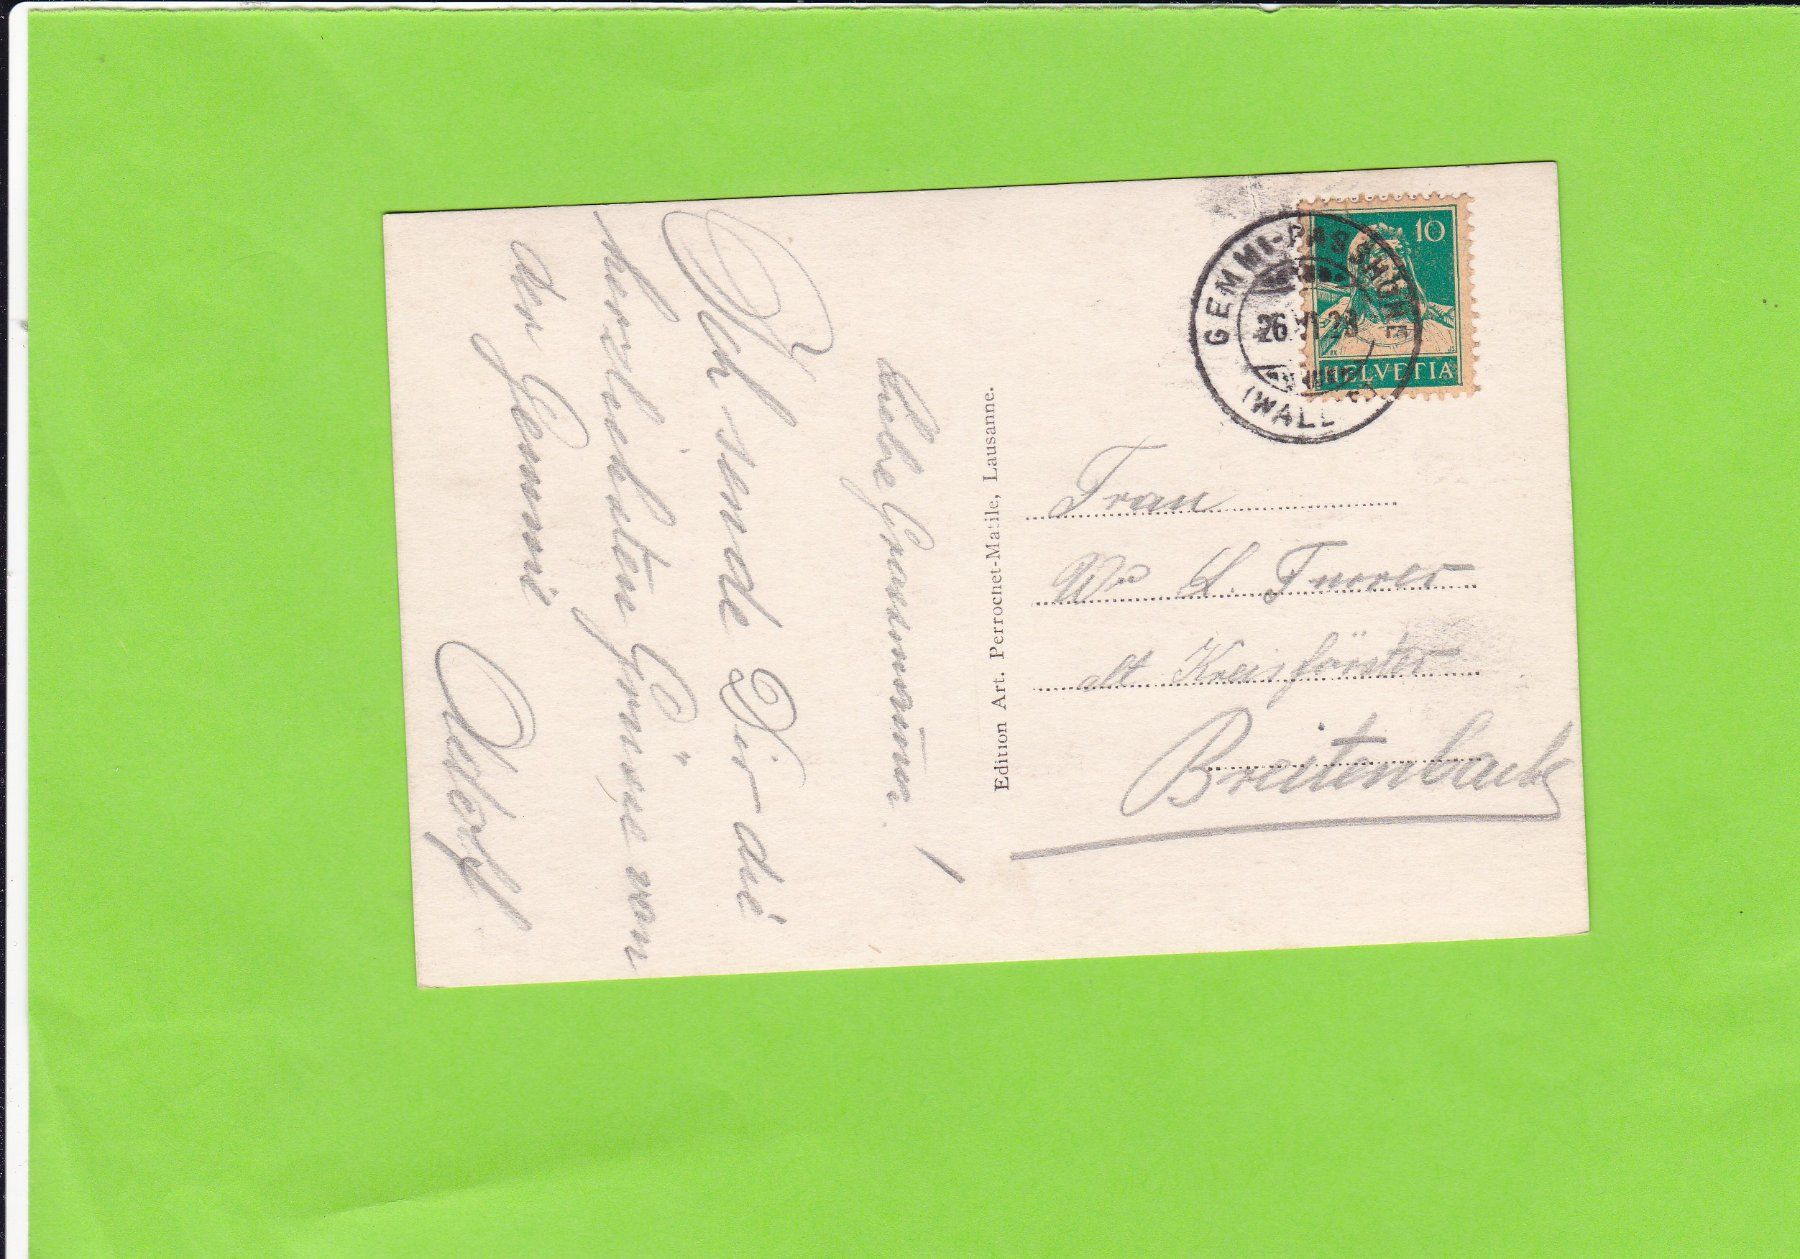 Liebe Grossmama!
Ich sende Dir die
herzlichsten Grüsse von
der Gemmi
Adolf
Edition Art. Perrochet-Matile, Lausanne.
GEMMI-PASSHÖHE
26. VI. 28
(WALLIS)
10
HELVETIA
Frau
Wwe L. Furrer
alt Kreisförster
Breitenbach